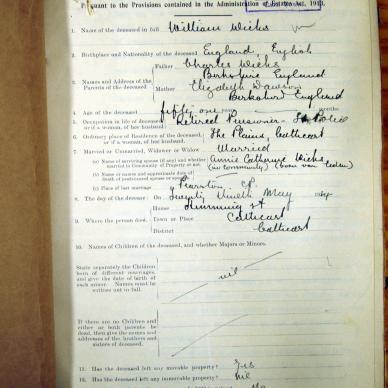 Pursuant to the Provisions contained in the Administration of Estates Act, 1913.
1. Name of the deceased in full William Wicks
2. Birthplace and Nationality of the deceased England, English
3. Names and Address of the Parents of the deceased
Father Charles Wicks
Berkshire England
Mother Elizabeth Dawson
Berkshire England
4. Age of the deceased fifty one years months
5. Occupation in life of deceased or if a woman, of her husband: Retired Pensioner
6. Ordinary place of Residence of the deceased or if a woman, of her husband: The Plains Cathcart
7. Married or Unmarried, Widower or Widow Married
(a) Name of surviving spouse (if any) and whether married in Community of Property or not. Annie Catherine Wicks
(in community) (born van
(b) Name or names and approximate date of death of predeceased spouse or spouses
(c) Place of last marriage Pearston CP.
8. The day of the decease: On Twenty Ninth May
9. Where the person died.
House Hemming St
Town or Place Cathcart
District Cathcart
10. Names of Children of the deceased, and whether Majors or Minors.
State separately the Children born of different marriages, and give the date of birth of each minor. Names must be written out in full.
nil
If there are no Children and either or both parents be dead, then give the names and addresses of the brothers and sisters of deceased.
11. Has the deceased left any movable property? Yes
12. Has the deceased left any immovable property? Nil
No